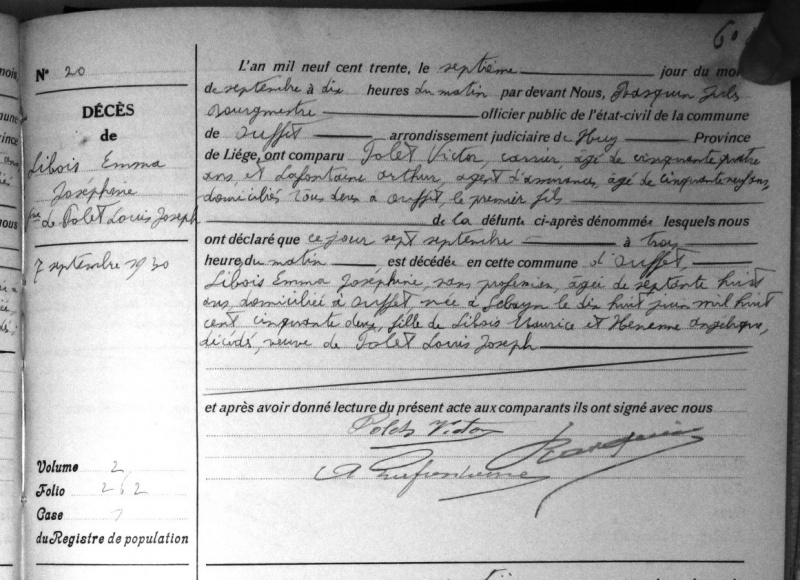 60
N° 20
DÉCÈS
de
Libois Emma
Joséphine
ve de Polet Louis Joseph
7 septembre 1930
Volume 2
Folio 262
Case
du Registre de population
L'an mil neuf cent trente, le septième jour du mois
de septembre à dix heures du matin par devant Nous, Jules
Bourgmestre officier public de l'état-civil de la commune
de Ouffet arrondissement judiciaire de Huy Province
de Liége, ont comparu Polet Victor, carrier âgé de cinquante quatre
ans, et Lafontaine Arthur, agent d'assurances, âgé de cinquante neuf ans,
domiciliés tous deux à Ouffet, le premier fils
de la défunte ci-après dénommée lesquels nous
ont déclaré que ce jour sept septembre à trois
heures du matin est décédée en cette commune d'Ouffet,
Libois Emma Joséphine, sans profession, âgée de septante huit
ans, domiciliée à Ouffet née à le dix huit juin mil huit
cent cinquante deux, fille de Libois Maurice et Henenne Angélique,
décédés, veuve de Polet Louis Joseph
et après avoir donné lecture du présent acte aux comparants ils ont signé avec nous
Polet Victor
A Lafontaine